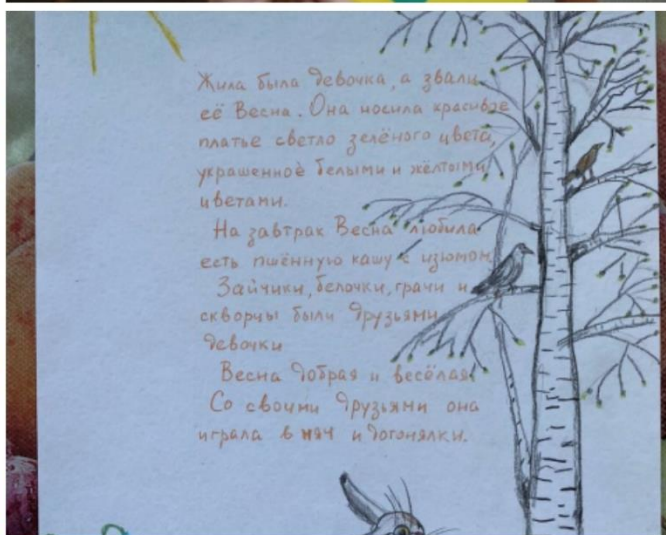 Жила была девочка, а звали
её Весна. Она носила красивое
платье светло зелёного цвета,
украшенноё белыми и жёлтыми
цветами.
На завтрак Весна любила
есть пшённую кашу с изюмом
Зайчики, белочки, грачи и
скворцы были друзьями
девочки
Весна добрая и весёлая.
Со своими друзьями она
играла в мяч и догонялки.